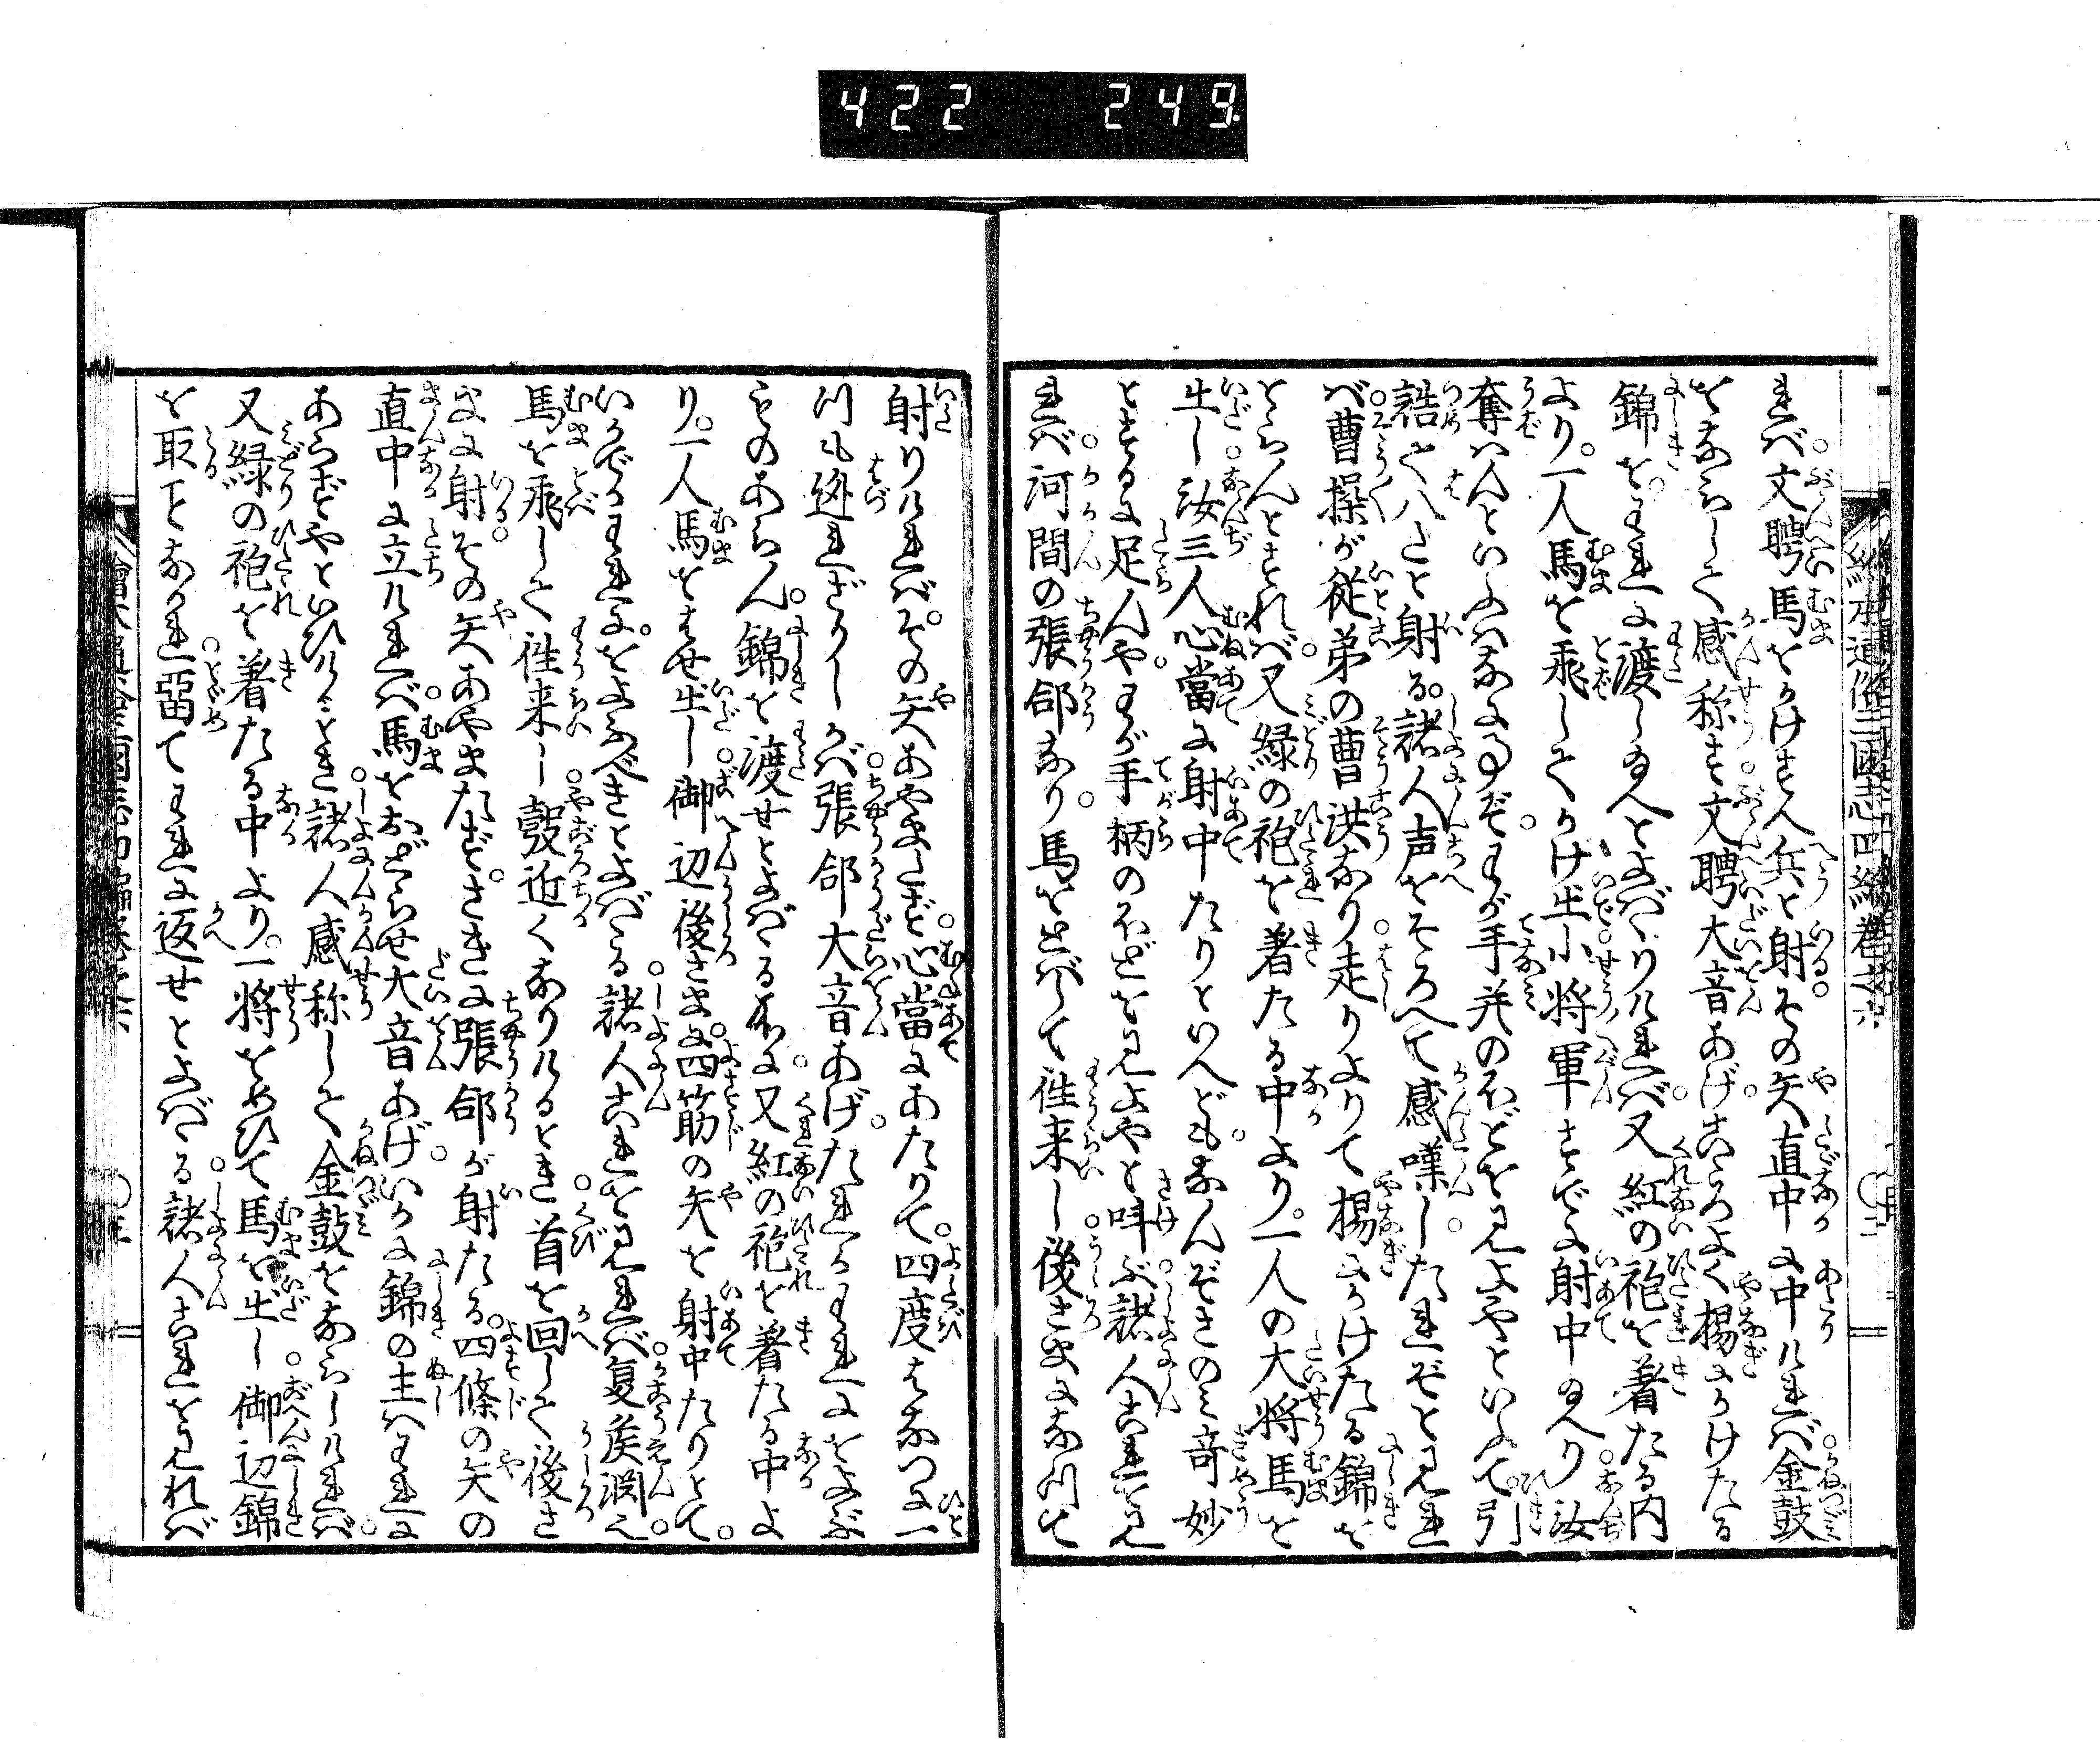 422 249
繪本通俗三國志四編卷之六
れバ文聘馬をかけさん兵と射その矢直中に中けれバ金鼓
をならして感称す文聘大音あげこゝろよく楊にかけたる
錦をわれに渡し玉へとよバゝりけれバ又紅の袍を着たる内
より一人馬を飛してかけ出小将軍すでに射中玉へり汝
奪ハんといふハなに事ぞわが手並のほどを見よやといふて引
詰てハたと射る諸人声をそろへて感嘆したれぞと見れ
バ曹操が従弟の曹洪なり走りよりて楊にかけたる錦を
とらんとすれバ又緑の袍を着たる中より一人の大将馬を
出し汝三人心當に射中たりといへどもなんぞきのミ奇妙
とするに足んやわが手柄のほどを見よやと叫ぶ諸人これを見
れバ河間の張郃なり馬をとバして往来し後さまになげて
射けれバその矢あやまたず心當にあたりて四度はなつに一
つも迯れざりしかバ張郃大音あげたれかわれにをよぶ
ものあらん錦を渡せとよバゝる所に又紅の袍を着たる中よ
り一人馬をはせ出し御辺後さまに四筋の矢を射中たりとて
いかでかわれにをよぶべきとよバゝる諸人これを見れバ夏侯淵也
馬を飛して往来し彀近くなりけるとき首を回して後さ
まに射その矢あやまたずさきに張郃が射たる四條の矢の
直中に立けれバ馬をおどらせ大音あげいかに錦の主ハわれに
あらずやといひけるとき諸人感称して金鼓をならしけれバ
又緑の袍を着たる中より一将をめいて馬を出し御辺錦
を取ことなかれ畱てわれに返せとよバゝる諸人これを見れバ